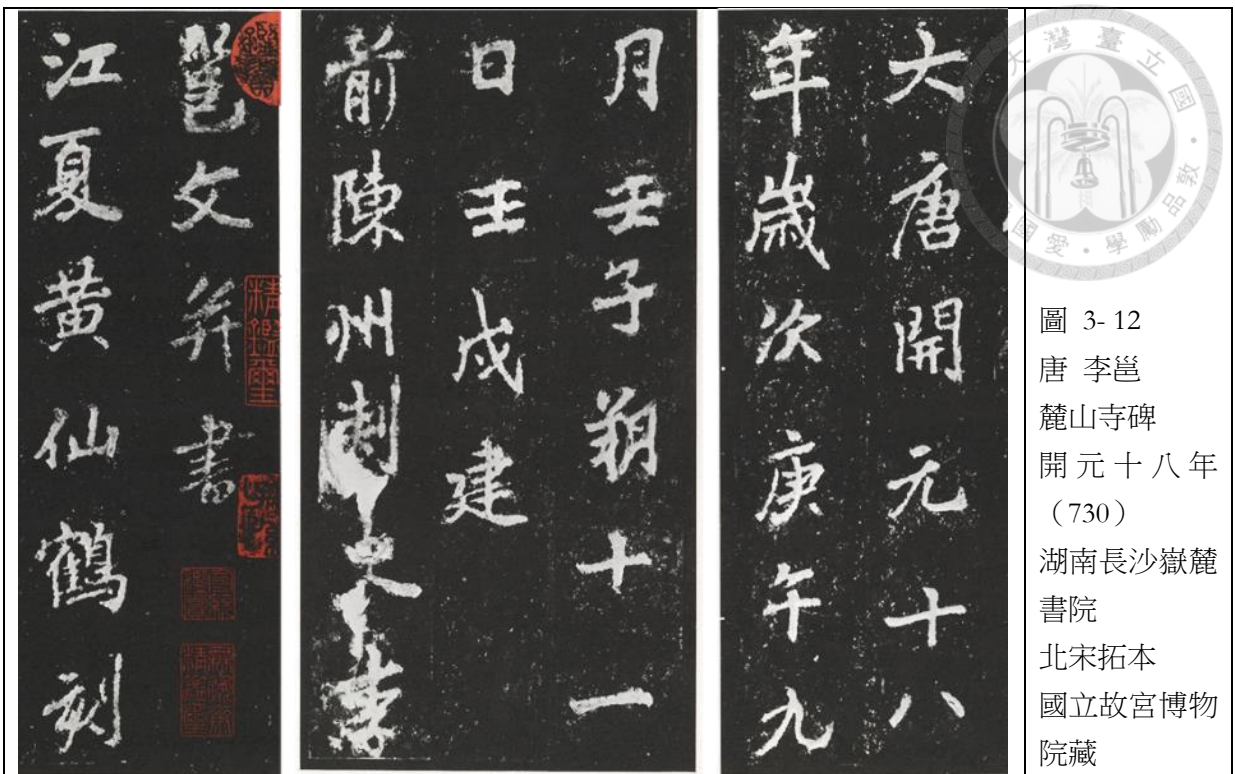 大唐開元十八
年歲次庚午九
月壬子朔十一
日壬戌建
前陳州刺史李
邕文并書
江夏黃仙鶴刻
圖 3- 12
唐 李邕
麓山寺碑
開元十八年
（730）
湖南長沙嶽麓
書院
北宋拓本
國立故宮博物
院藏